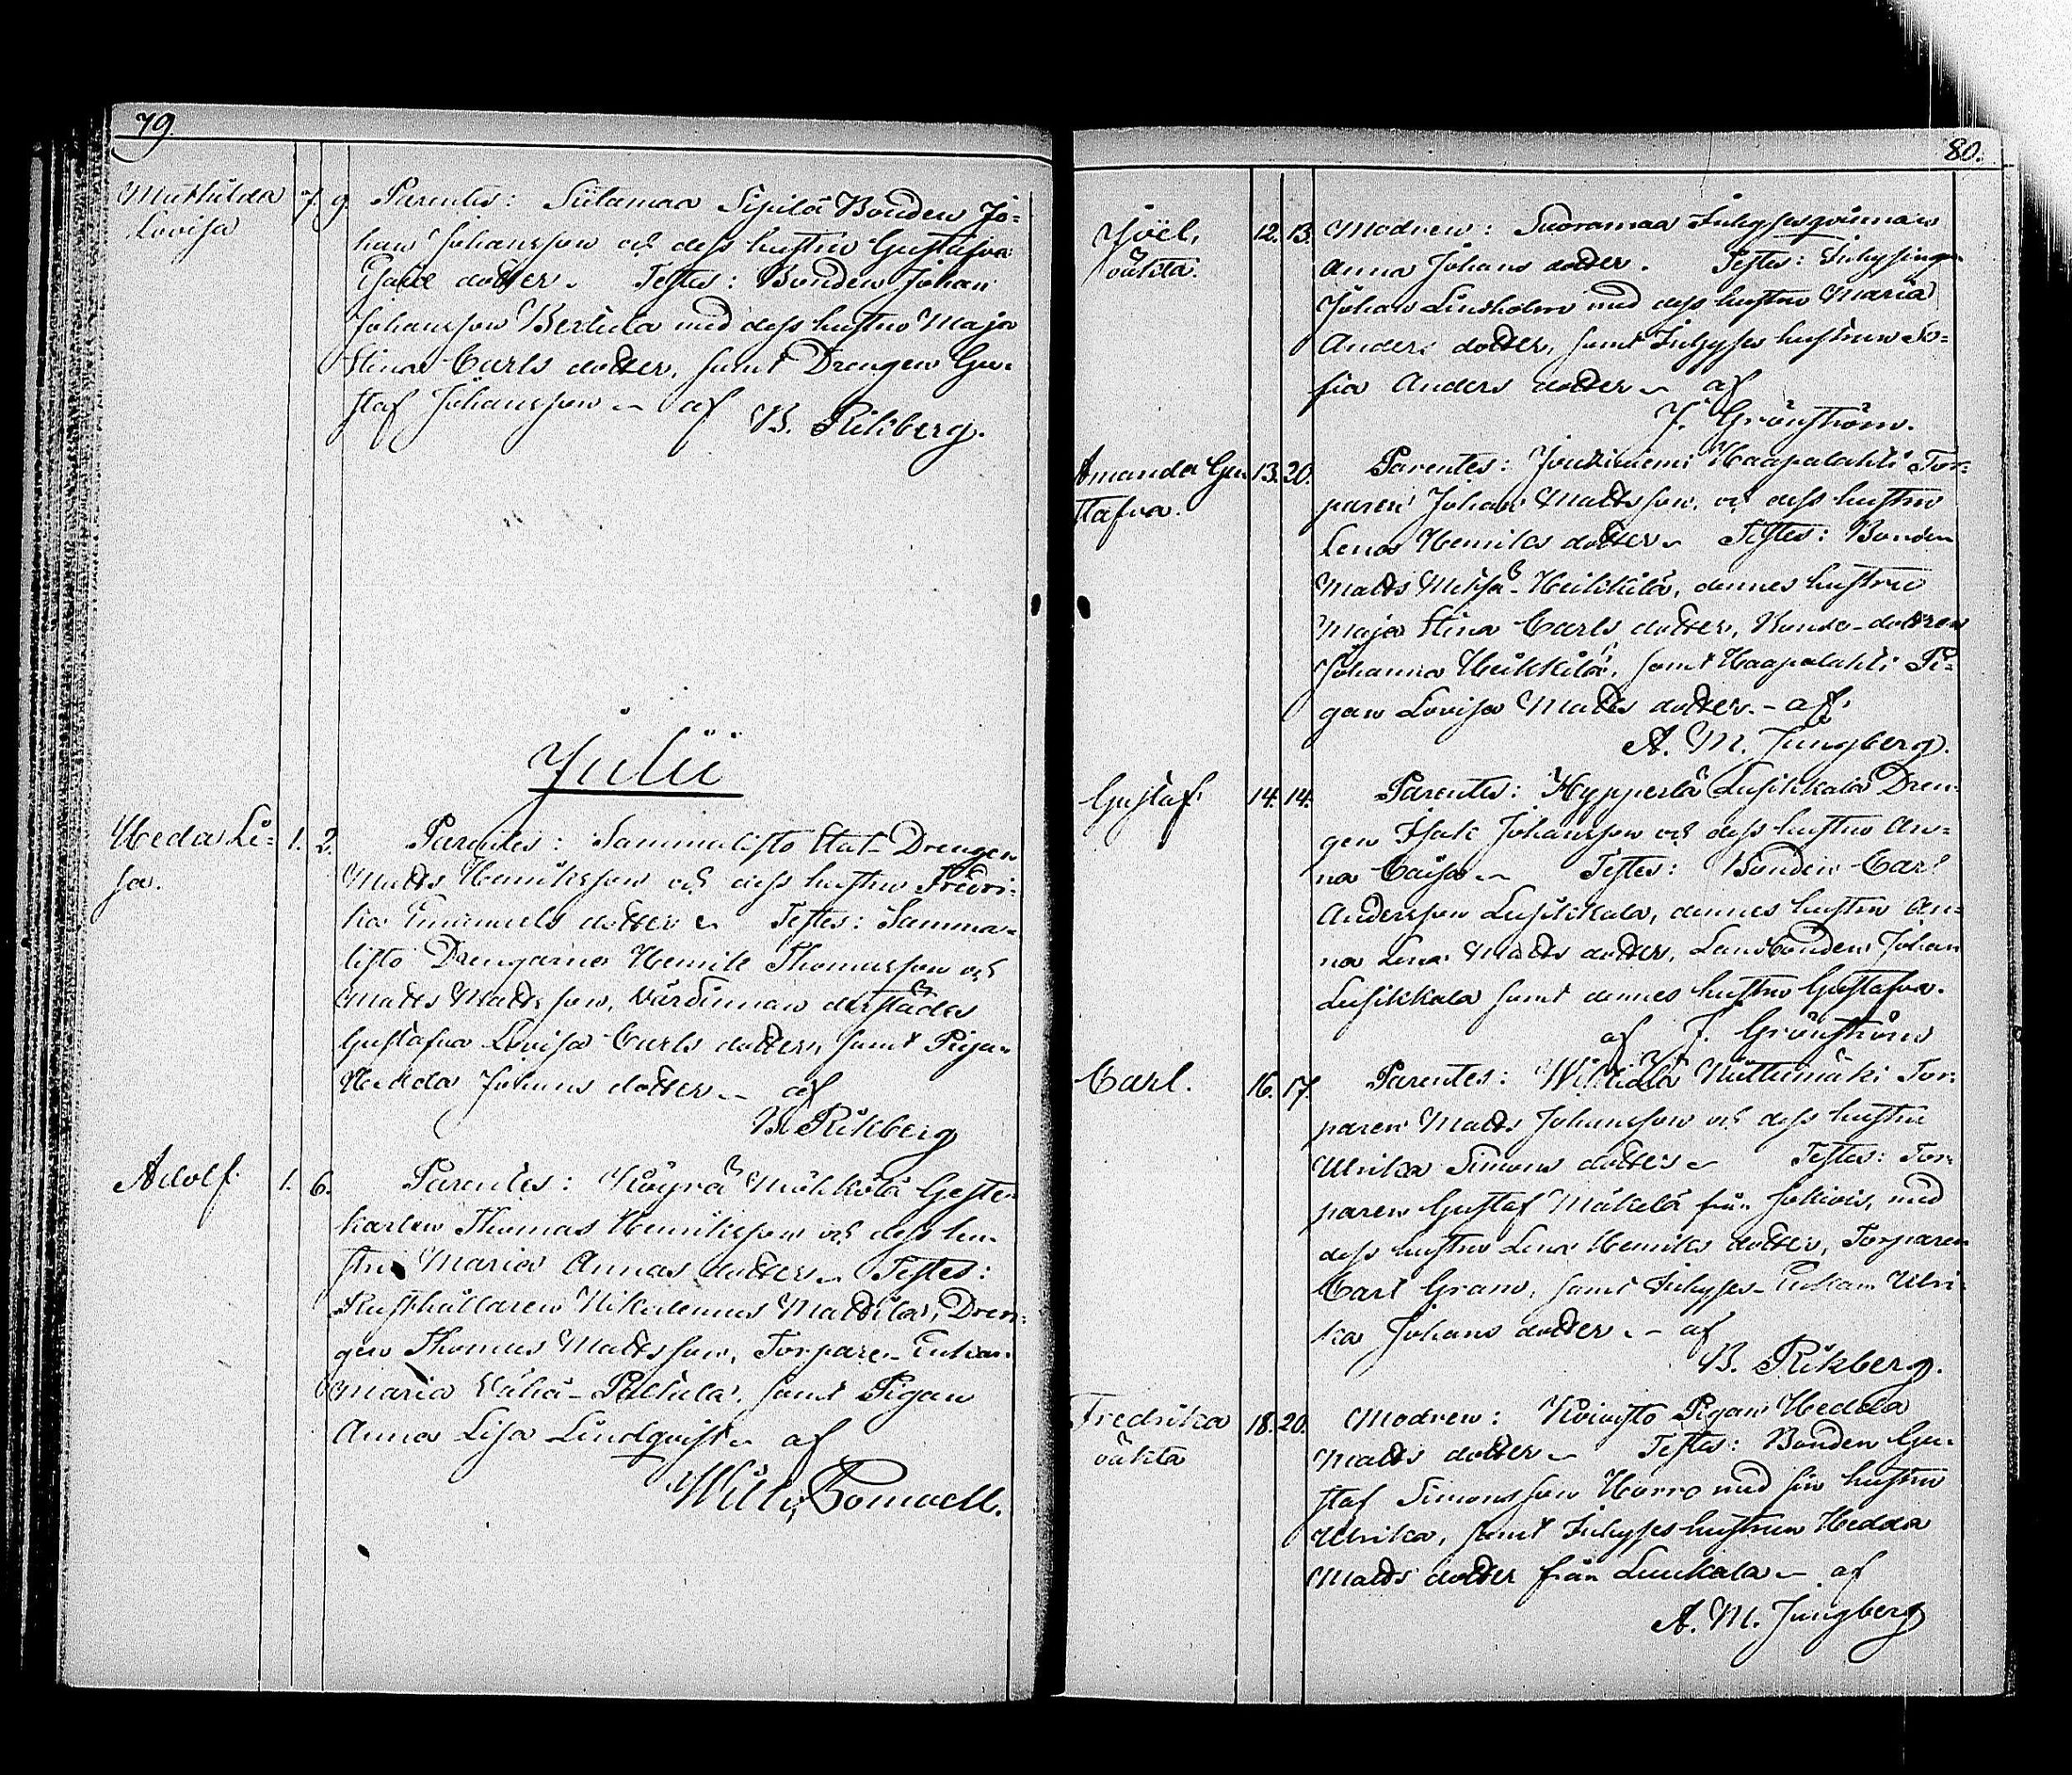 79.
Mathilda 7. 9. Parentes: Siitamaa Sipilä Bonden Jo-
Lovisa han Johansson och dess hustru Gustafva
Isaks dotter. Testes: Bonden Johan
Johansson Bertula med dess hustru Maja
Stina Carls dotter, samt Drengen Gu-
staf Johansson af
B. Rikberg.
Julii
Heda Li- 1. 2. Parentes: Sammalisto Stat-Drengen
sa. Matts Henriksson och dess hustru Fredri-
ka Emanuels dotter Testes: Samma-
listo Drengarne Henrik Thomasson och
Matts Mattsson, Värdinnan derstädes
Gustafva Lovisa Carls dotter, samt Pigan
Hedda Johans dotter af
B. Rikberg
Adolf. 1. 6. Parentes: Köyrä Mälkölä Gester-
karlen Thomas Henriksson och dess hu-
stru Maria Annas dotter. Testes:
Rusthållaren Nikodemus Mattila, Dren-
gen Thomas Mattsson, Torpare-Enkan
Maria Vähä-Pettula, samt Pigan
Anna Lisa Lindqvist af
Wilh. Bomoell.
80.
Joël, 12. 13. Modren: Suoramaa Inhysesqvinnan
oäkta. Anna Johans dotter. Testes: Inhysing
Johan Lindholm med dess hustru Maria
Anders dotter, samt Inhyses hustrun So-
fia Anders dotter af
J. Grönström.
Amanda Gu 13. 20. Parentes: Joutsiniemi Haapalahti Tor-
stafva. paren Johan Mattsson, och dess hustru
Lena Henriks dotter Testes: Bonden
Matts Matsa-Heikkilä, dennes hustru
Maja Stina Carls dotter, Bonde-dottren
Johanna Heikkilä, samt Haapalahti Pi-
gan Lovisa Matts dotter. af
A. M. Jungberg.
Gustaf 14. 14. Parentes: Hypperlä Lusikkala Dren-
gen Isak Johansson och dess hustru An-
na Caisa Testes: Bonden Carl
Andersson Lusikkala, dennes hustru An-
na Lena Matts dotter, Landbonden Johan
Lusikkala samt dennes hustru Gustafva.
af J. Grönström
Carl. 16. 17. Parentes: Niittumäki Tor-
paren Matts Johansson och dess hustru
Ulrika Simons dotter Testes: Tor-
paren Gustaf Mäkelä från Jokiois, med
dess hustru Lena Henriks dotter, Torparen
Carl Gran, samt Inhyses-Enkan Ulri-
ka Johans dotter af
B. Rikberg.
Fredrika 18. 20. Modren: Koivisto Pigan Hedda
oäkta Matts dotter Testes: Bonden Gu-
staf Simonsson Horro med sin hustru
Ulrika, samt Inhyses hustrun Hedda
Matts dotter från Luukala af
A. M. Jungberg